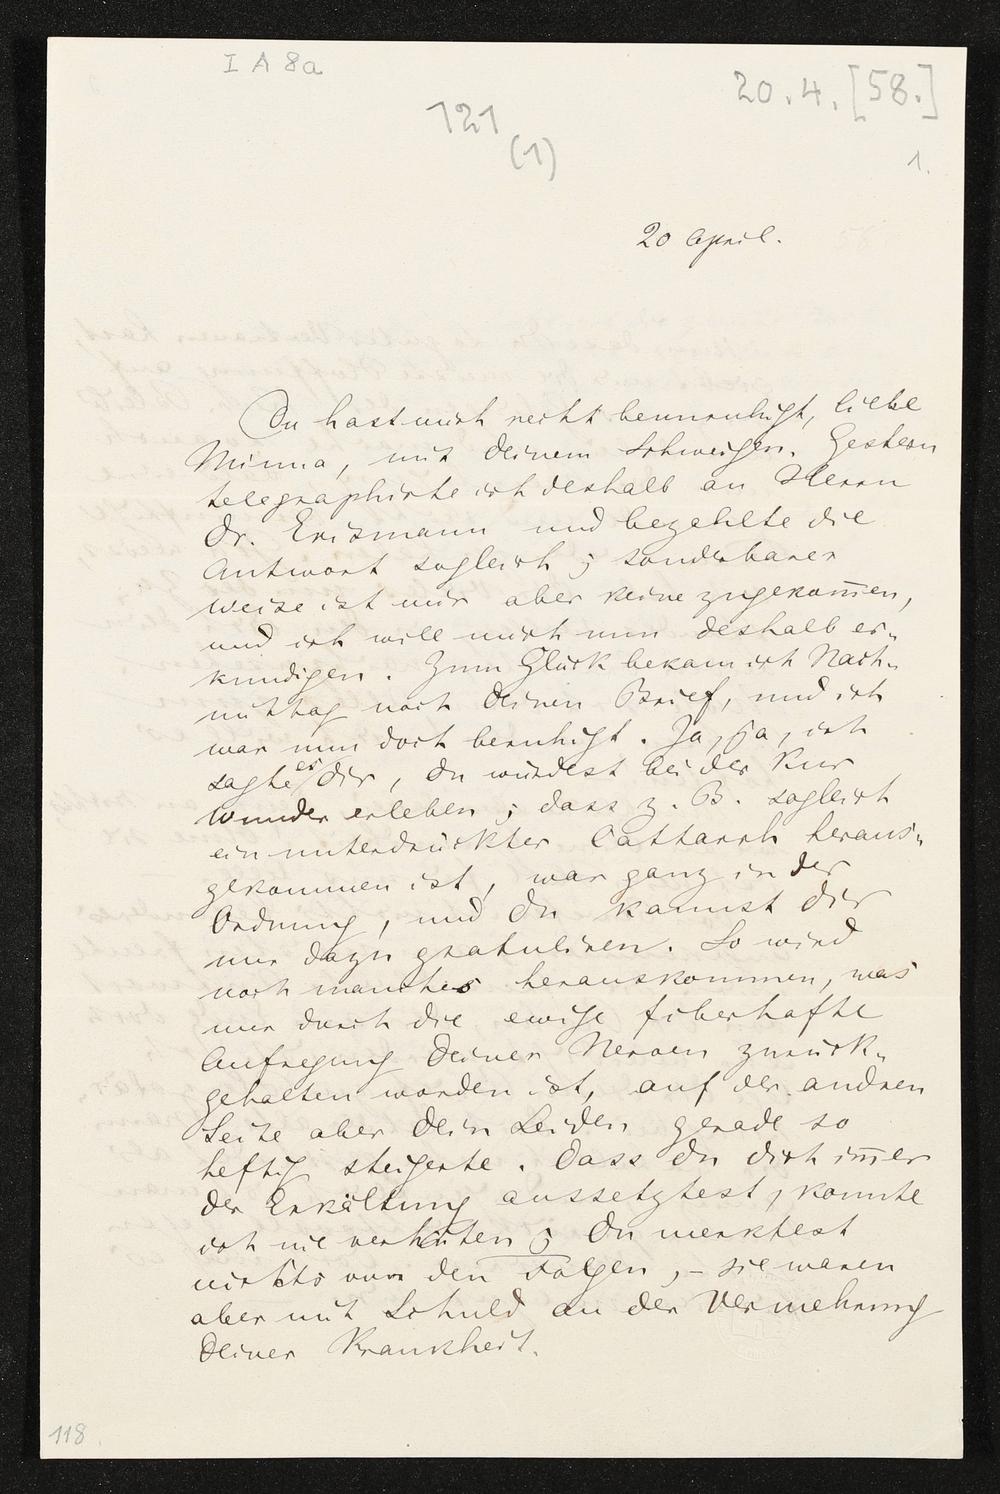 I A 8a
20.4.[58.]
121
(1)
1.
20 April.
Du hast mich recht beunruhigt, liebe
Minna, mit deinem Schweigen. Gestern
telegraphirte ich deshalb an Herrn
Dr. Erismann und bezahlte die
Antwort sogleich; sonderbarer
Weise ist mir aber keine zugekom̅en,
und ich will mich nun deshalb er-
kundigen. Zum Glück bekam ich Nach-
mittag noch deinen Brief, und ich
war nun doch beruhigt. Ja, ja, ich
sagte es dir, du würdest bei der Kur
Wunder erleben; dass z. B. sogleich
ein unterdrückter Catharrh heraus-
gekommen ist, war ganz in der
Ordnung, und Du kannst dir
nur dazu gratuliren. So wird
noch manches herauskommen, was
nur durch die ewige fiberhafte
Aufregung deiner Nerven zurück-
gehalten worden ist, auf der andren
Seite aber dein Leiden gerade so
heftig steigerte. Dass du dich im̅er
der Erkältung aussetztest, konnte
ich nie verhüten; Du merktest
nichts von den Folgen, – sie waren
aber mit Schuld an der Vermehrung
deiner Krankheit.
118